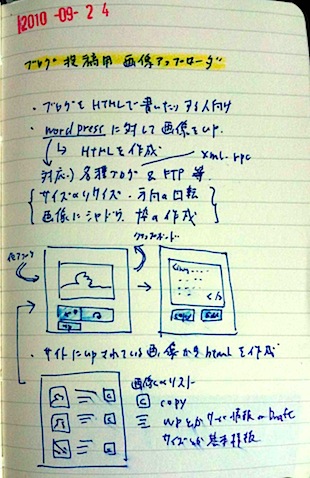 2010 -09- 2 4
ブログ投稿用 画像アップローダ
・ブログをHTMLで書いたりする人向け
・wordpressに対して画像をup.
↳ HTMLを作成
xml-rpc
対応) 各種ブログ & FTP 等.
サイズのリサイズ・方向の回転
画像にシャドウ、枠の作成
クリップボード
up
<img
</>
copy
・サイトにupされている画像からhtmlを作成
画像のリスト
C copy
サイズとか基本情報